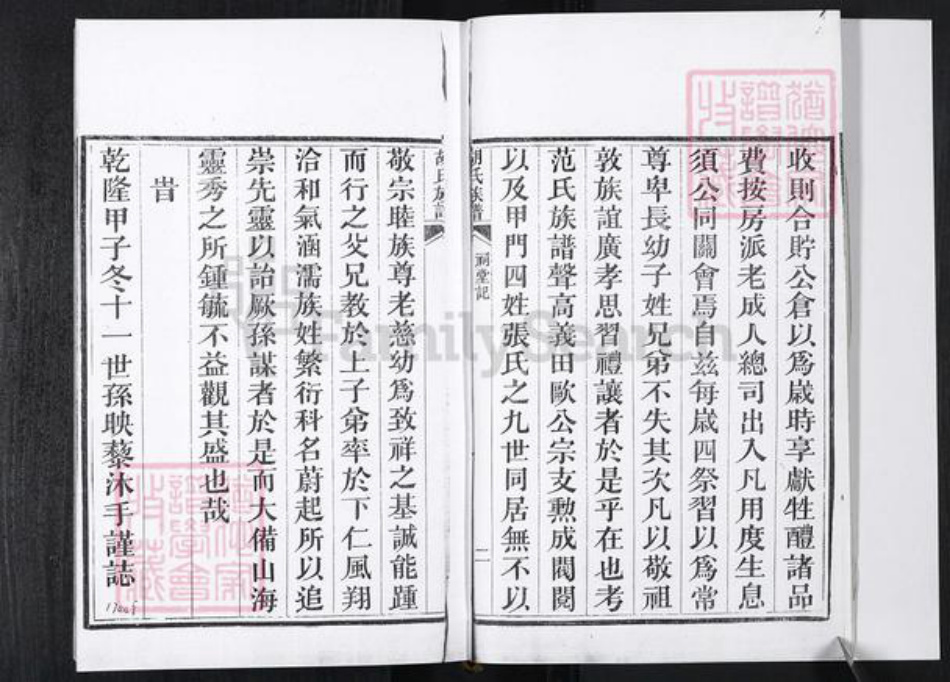 收則合貯公倉以爲歲時享獻牲醴諸品
費按房派老成人總司出入凡用度生息
須公同鬮會焉自茲每歲四祭習以爲常
尊卑長幼子姓兄弟不失其次凡以敬祖
敦族誼廣孝思習禮讓者於是乎在也考
范氏族譜聲高義田歐公宗支勲成閥閱
以及甲門四姓張氏之九世同居無不以
胡氏族譜
祠堂記
二
敬宗睦族尊老慈幼爲致祥之基誠能踵
而行之父兄教於上子弟率於下仁風翔
洽和氣涵濡族姓繁衍科名蔚起所以追
崇先靈以詒厥孫謀者於是而大備山海
靈秀之所鍾毓不益觀其盛也哉
旹
乾隆甲子冬十一世孫映藜沐手謹誌
FamilySearch